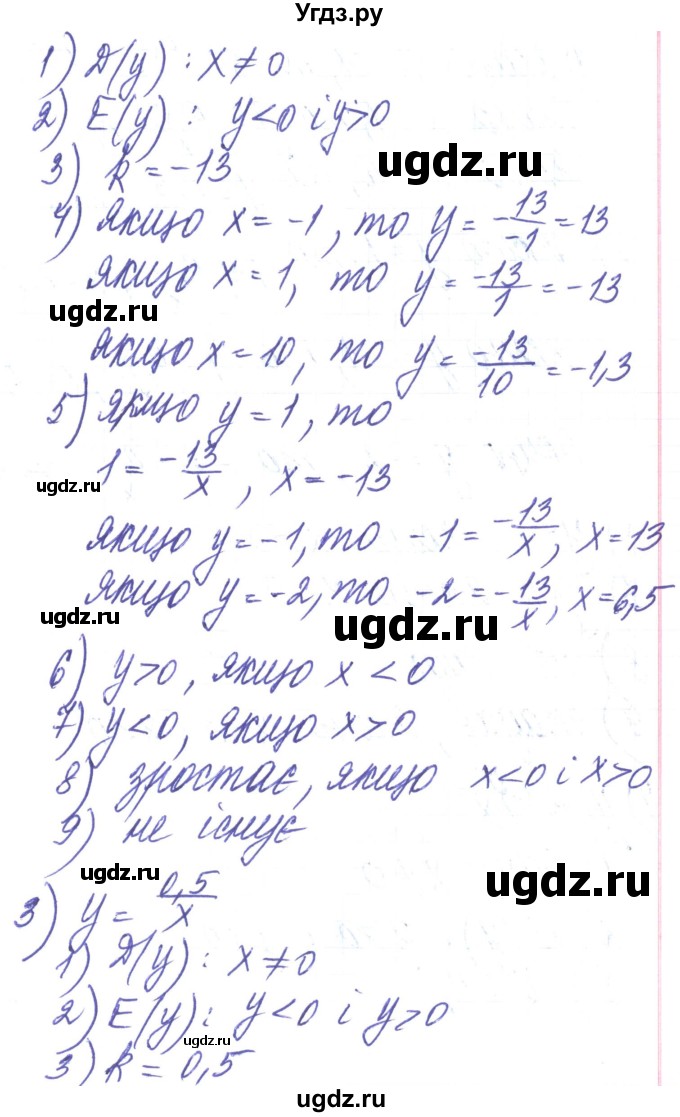 Угдз.ру
1) D(y) : x ≠ 0
2) E(y) : y < 0 i y > 0
ugdz.ru
3) k = -13
4) якщо x = -1, то y = -13/-1 = 13
якщо x = 1, то y = -13/1 = -13
ugdz.ru
якщо x = 10, то y = -13/10 = -1,3
5) якщо y = 1, то
1 = -13/x, x = -13
ugdz.ru
якщо y = -1, то -1 = -13/x, x = 13
якщо y = -2, то -2 = -13/x, x = 6,5
ugdz.ru
ugdz.ru
6) y > 0, якщо x < 0
7) y < 0, якщо x > 0
8) зростає, якщо x < 0 i x > 0
9) не існує
ugdz.ru
ugdz.ru
3) y = 0,5/x
1) D(y) : x ≠ 0
2) E(y) : y < 0 i y > 0
ugdz.ru
3) k = 0,5
ugdz.ru